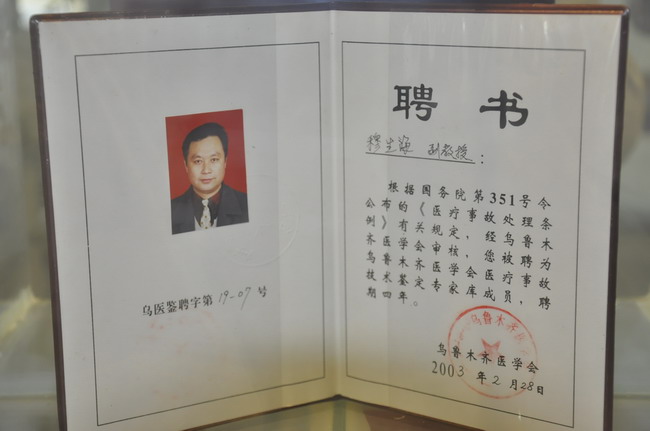 乌医鉴聘字第19-07号
聘书
穆生海 副教授：
根据国务院第351号令
公布的《医疗事故处理条
例》有关规定，经乌鲁木
齐医学会审核，您被聘为
乌鲁木齐医学会医疗事故
技术鉴定专家库成员，聘
期四年。
乌鲁木齐
乌鲁木齐医学会
2003年2月28日